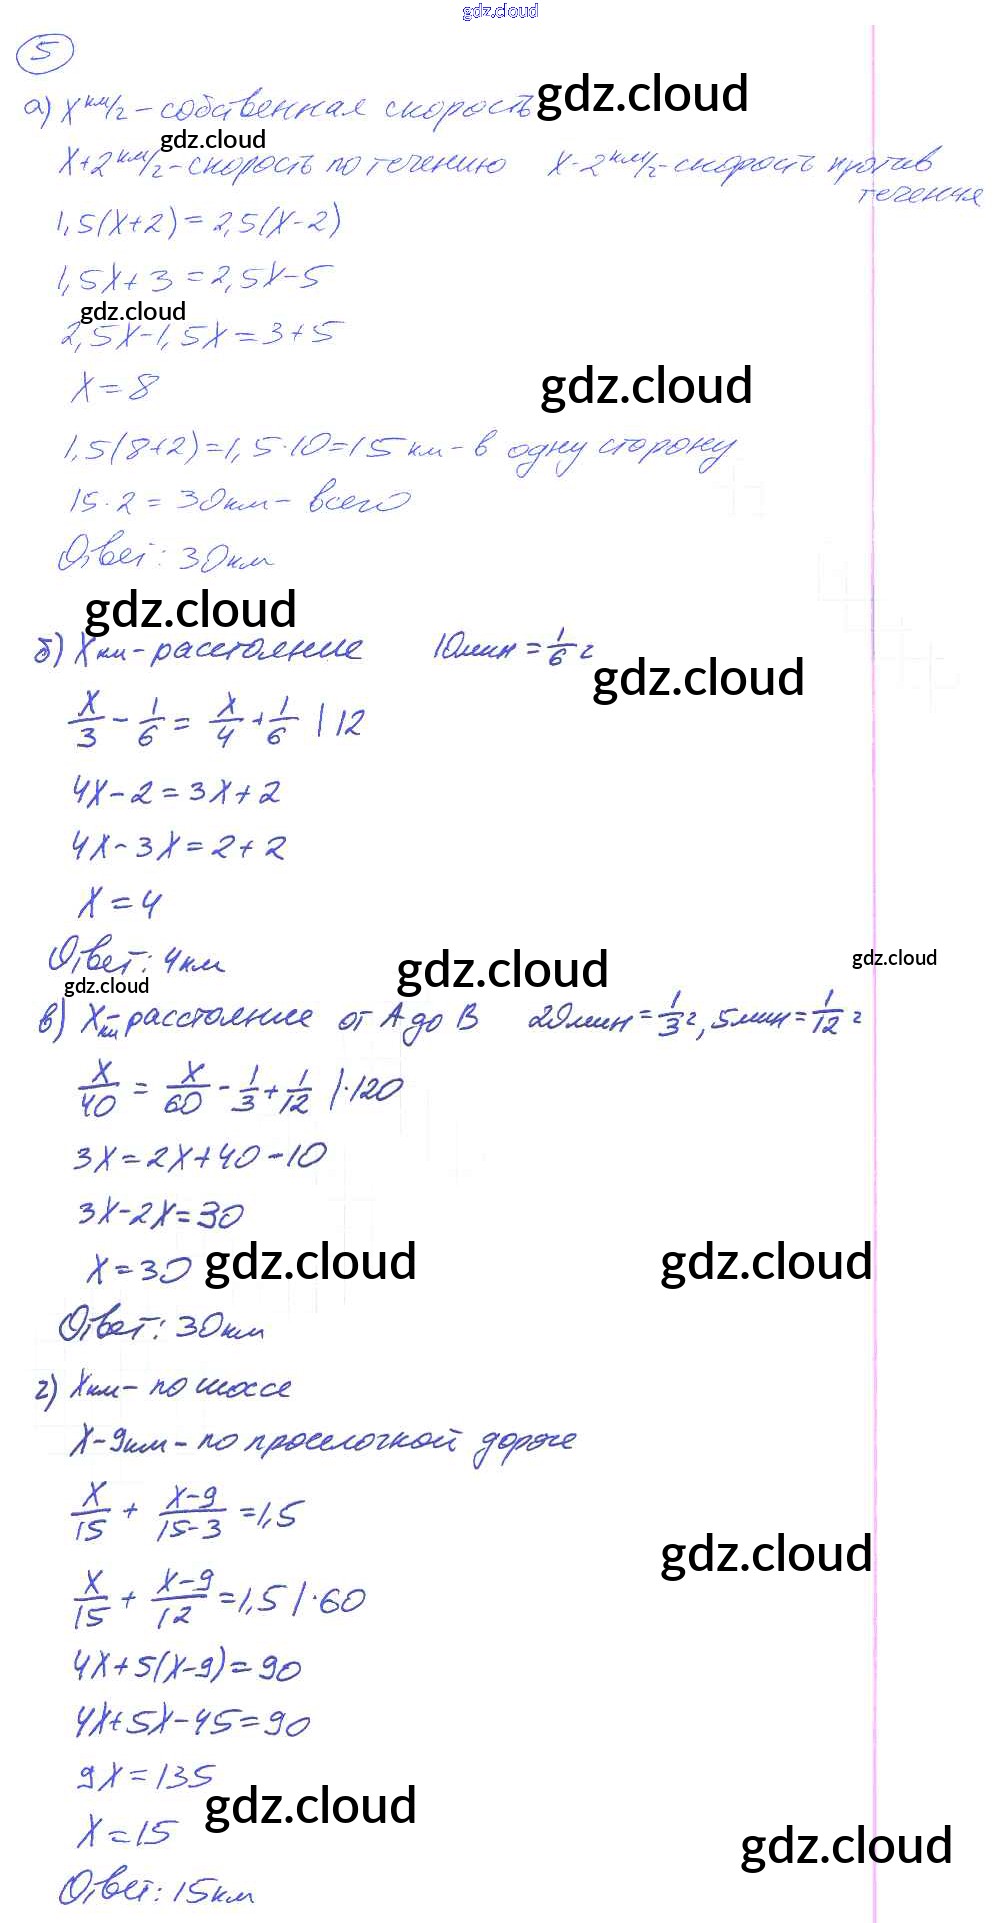 gdz.cloud
5
а) x км/ч - собственная скорость gdz.cloud
gdz.cloud
x+2 км/ч - скорость по течению x-2 км/ч - скорость против
течения
1,5(x+2) = 2,5(x-2)
1,5x+3 = 2,5x-5
gdz.cloud
2,5x-1,5x = 3+5
x = 8 gdz.cloud
1,5(8+2) = 1,5·10 = 15 км - в одну сторону
15·2 = 30 км - всего
Ответ: 30 км
gdz.cloud
б) x км - расстояние 10 мин = 1/6 ч
gdz.cloud
x/3 - 1/6 = x/4 + 1/6 | 12
4x-2 = 3x+2
4x-3x = 2+2
x = 4
Ответ: 4 км gdz.cloud gdz.cloud
gdz.cloud
в) x км - расстояние от А до В 20 мин = 1/3 ч, 5 мин = 1/12 ч
x/40 = x/60 - 1/3 + 1/12 |·120
3x = 2x+40-10
3x-2x = 30
x = 30 gdz.cloud gdz.cloud
Ответ: 30 км
г) x км - по шоссе
x-9 км - по проселочной дороге
x/15 + (x-9)/(15-3) = 1,5
gdz.cloud
x/15 + (x-9)/12 = 1,5 |·60
4x+5(x-9) = 90
4x+5x-45 = 90
9x = 135
gdz.cloud
x = 15 gdz.cloud
Ответ: 15 км